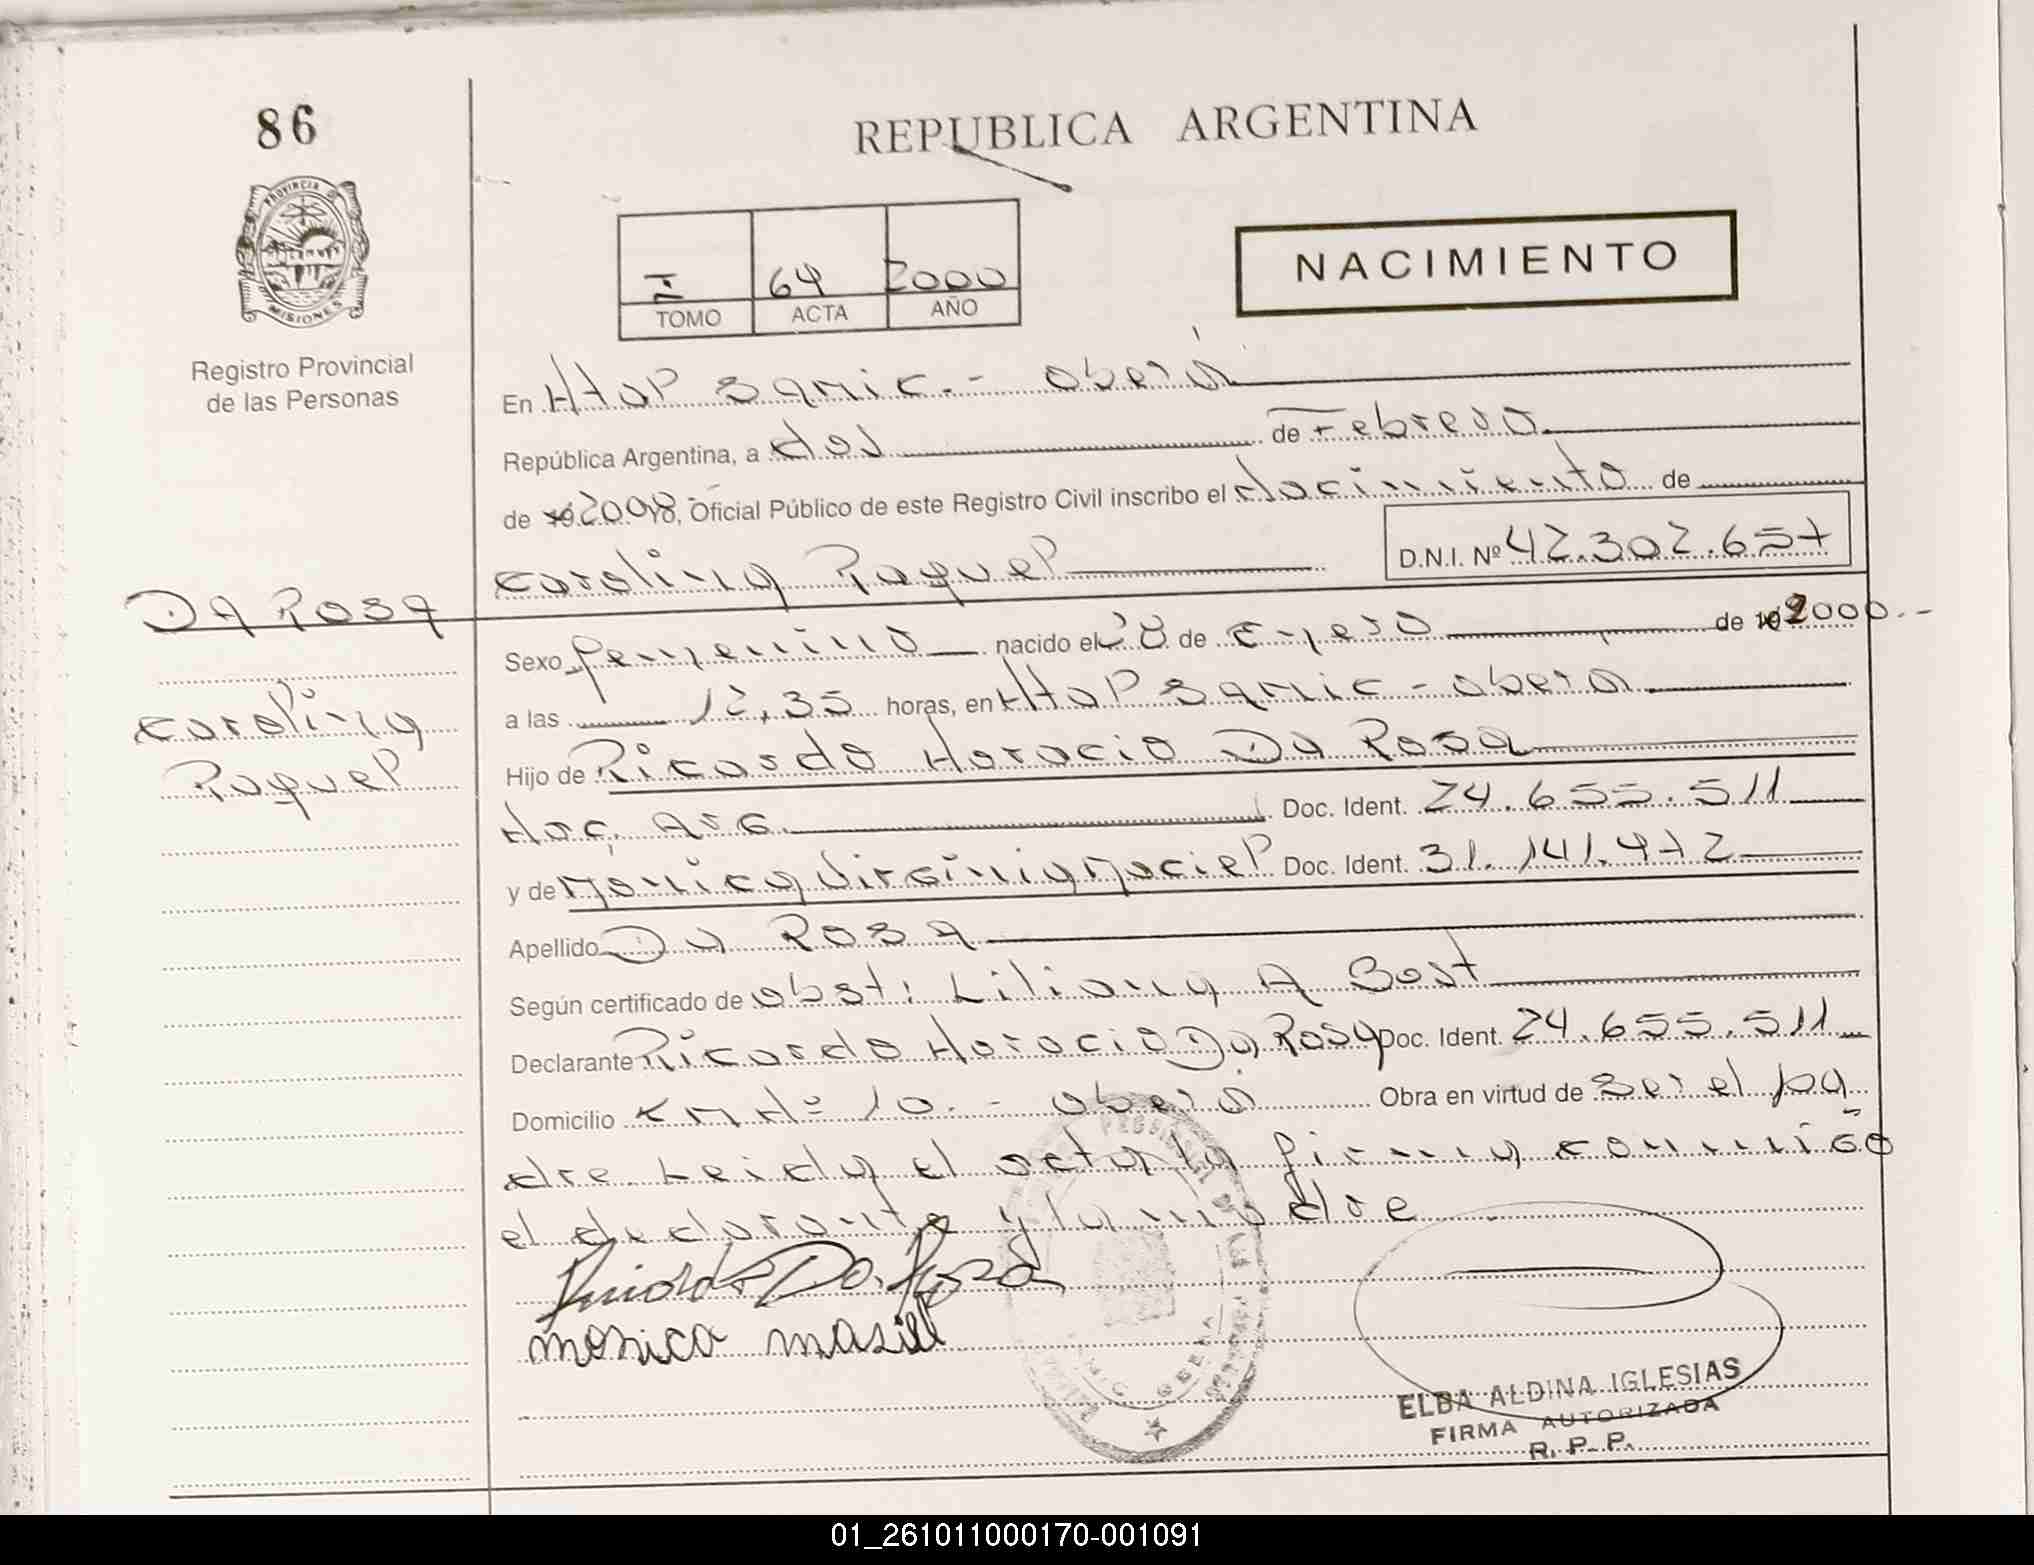 86
REPUBLICA ARGENTINA
PROVINCIA DE
MISIONES
Registro Provincial
de las Personas
I 64 2000
TOMO ACTA AÑO
NACIMIENTO
En Htal Samic.- Oberá
República Argentina, a dos de Febrero
de 2000, Oficial Público de este Registro Civil inscribo el Nacimiento de
Carolina Raquel D.N.I. Nº 42.302.657
DA ROSA
Carolina
Raquel
Sexo femenino nacido el 28 de Enero de 2000.-
a las 12,35 horas, en Htal Samic - Oberá
Hijo de Ricardo Horacio Da Rosa
Nac. Arg. Doc. Ident. 24.655.511
y de Mónica Virginia Maciel Doc. Ident. 31.141.472
Apellido Da Rosa
Según certificado de obst: Liliana A Bost
Declarante Ricardo Horacio Da Rosa Doc. Ident. 24.655.511
Domicilio Km Nº 10.- Oberá Obra en virtud de ser el pa
dre Leida el acta la firma conmigo
el declarante y la madre
Ricardo Da Rosa
monica masiel
ELBA ALDINA IGLESIAS
FIRMA AUTORIZADA
R. P. P.
01_261011000170-001091